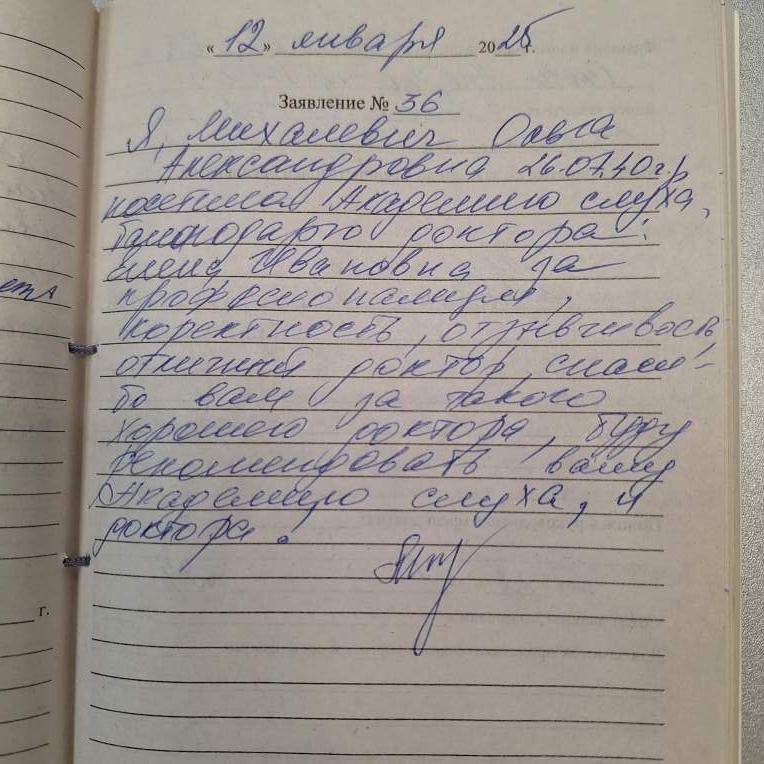 « 12 » января 2025 г.
Заявление № 36
Я, Михалевич Ольга
Александровна 26.07.40 г.р
посетила Академию слуха,
благодарю доктора:
Елена Ивановна за
професионализм,
коректность, отзывчивость,
отличный доктор, спаси-
бо вам за такого
хорошего доктора, буду
рекомендовать вашу
Академию слуха, и
доктора.
ета
г.